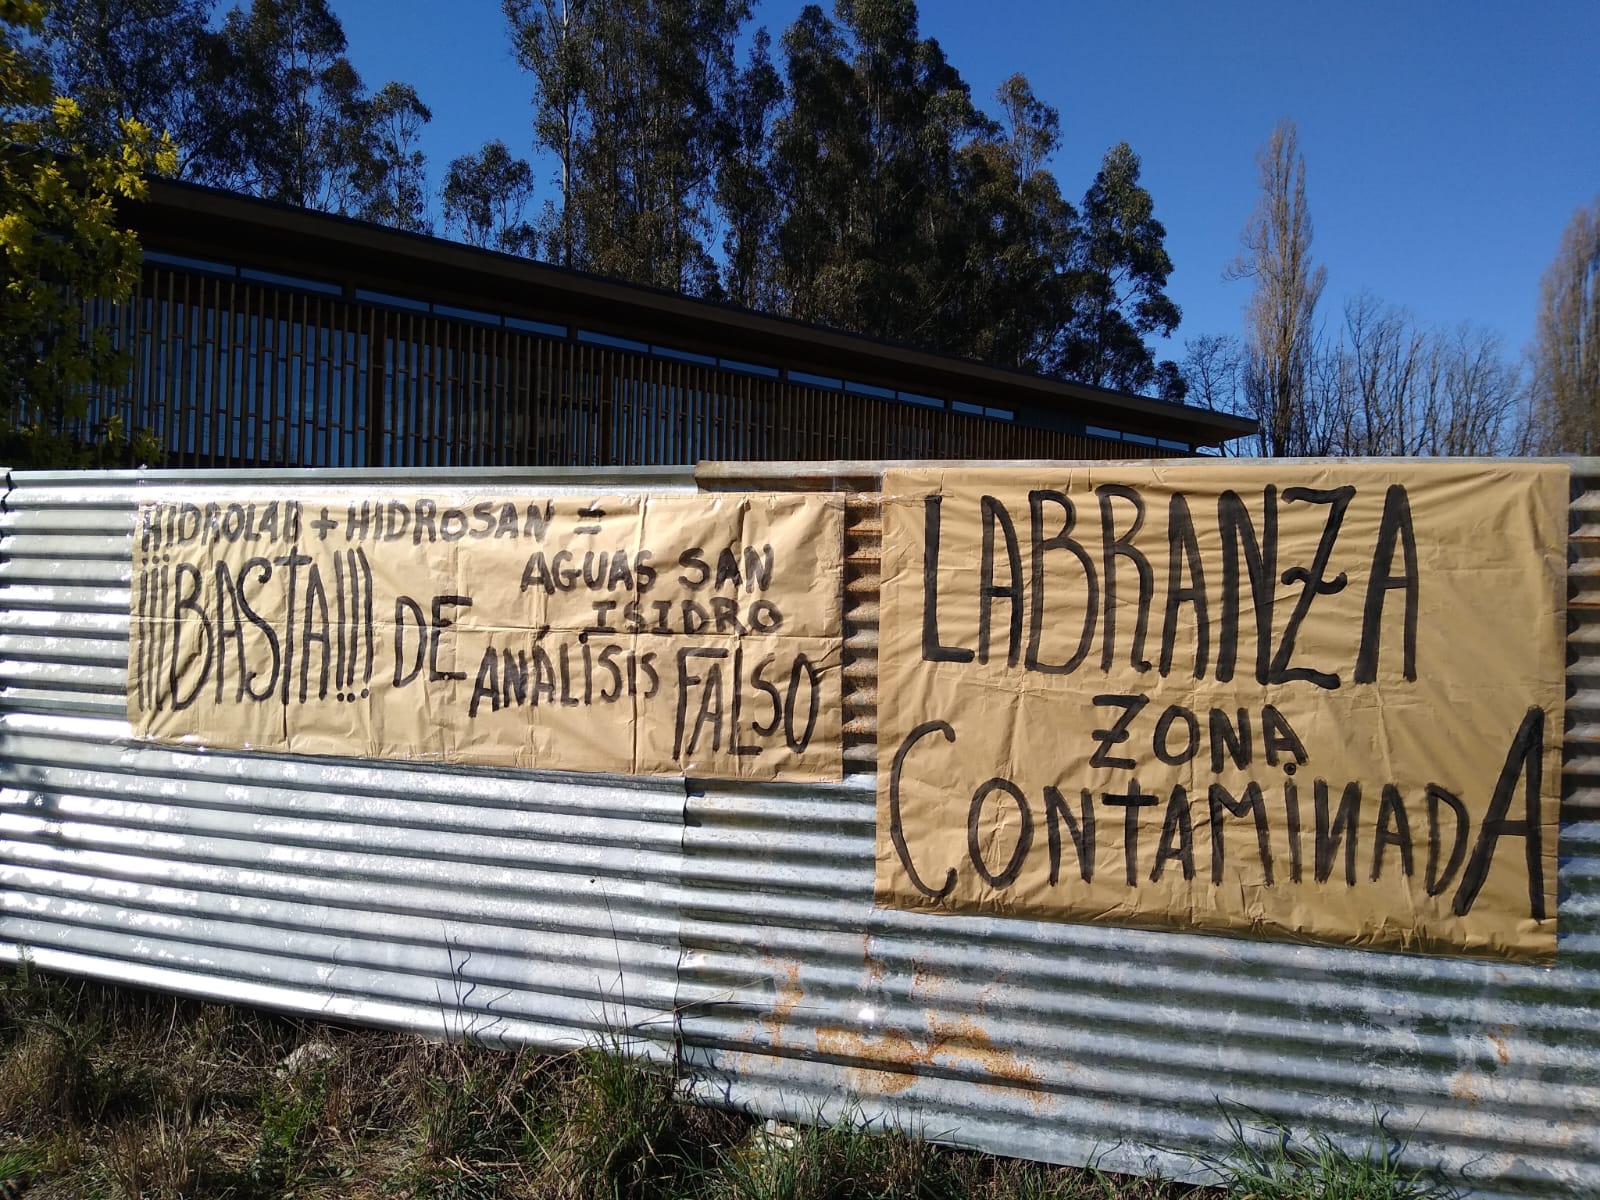 HIDROLAB + HIDROSAN =
AGUAS SAN
ISIDRO
¡¡¡BASTA!!! DE ANÁLISIS FALSO
LABRANZA
ZONA
CONTAMINADA